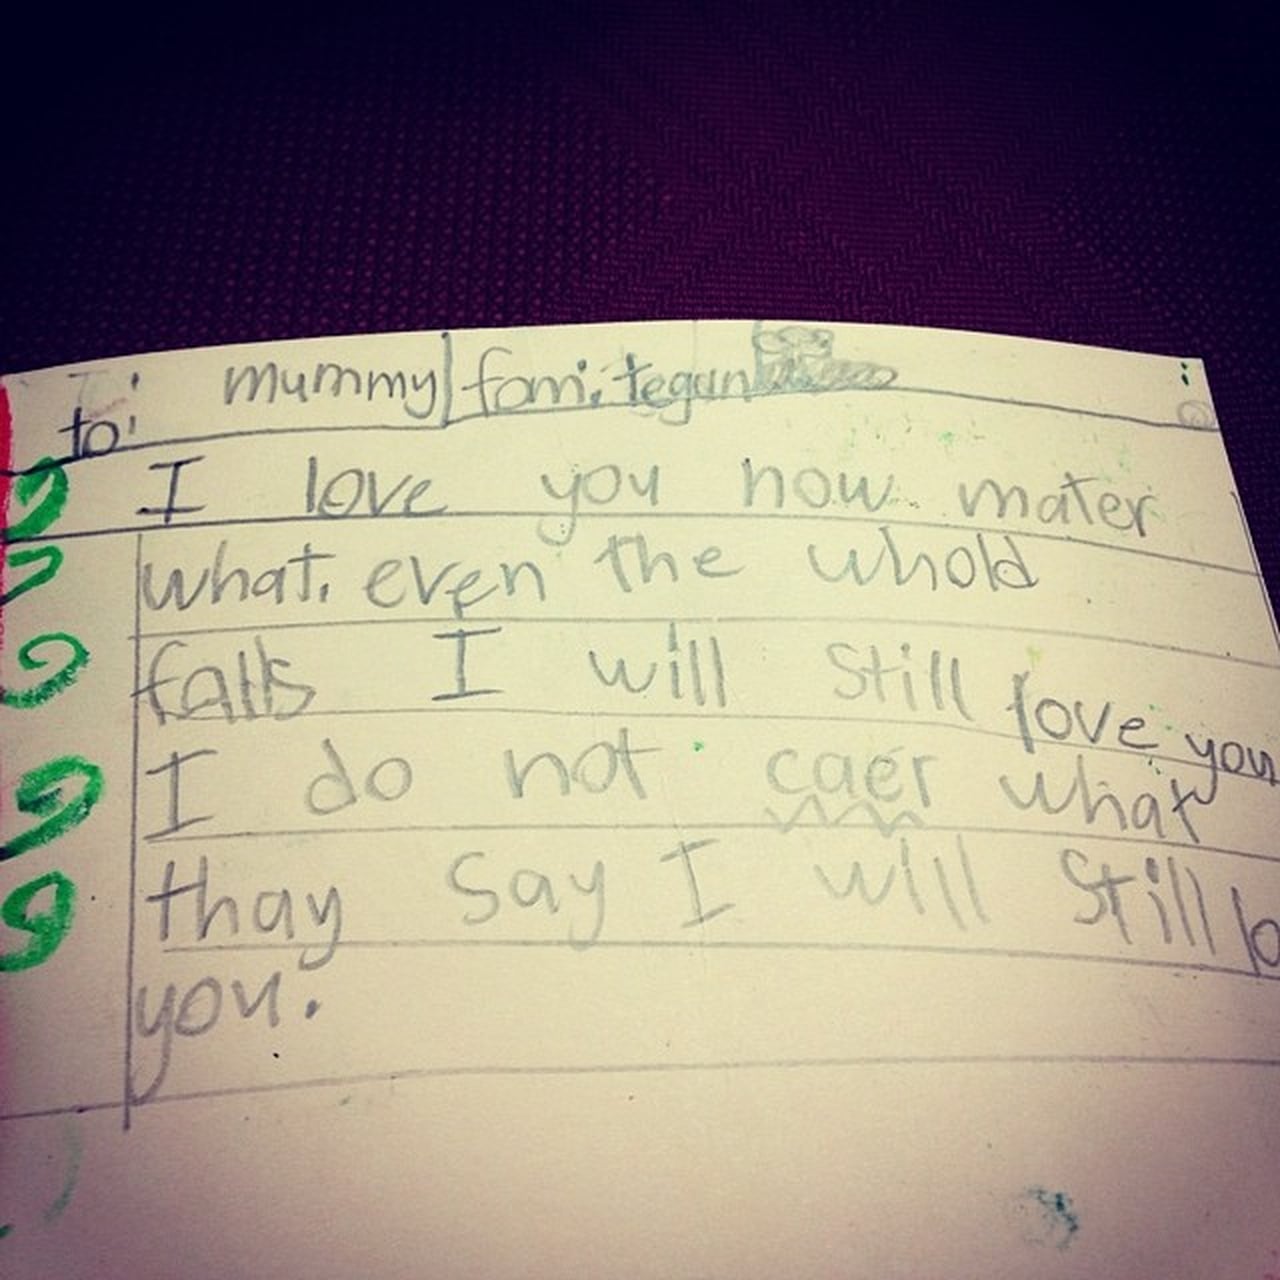 to: mummy fom: tegan
I love you now mater
what. even the whold
falls I will still love you
I do not caer what
thay say I will still lo
you.